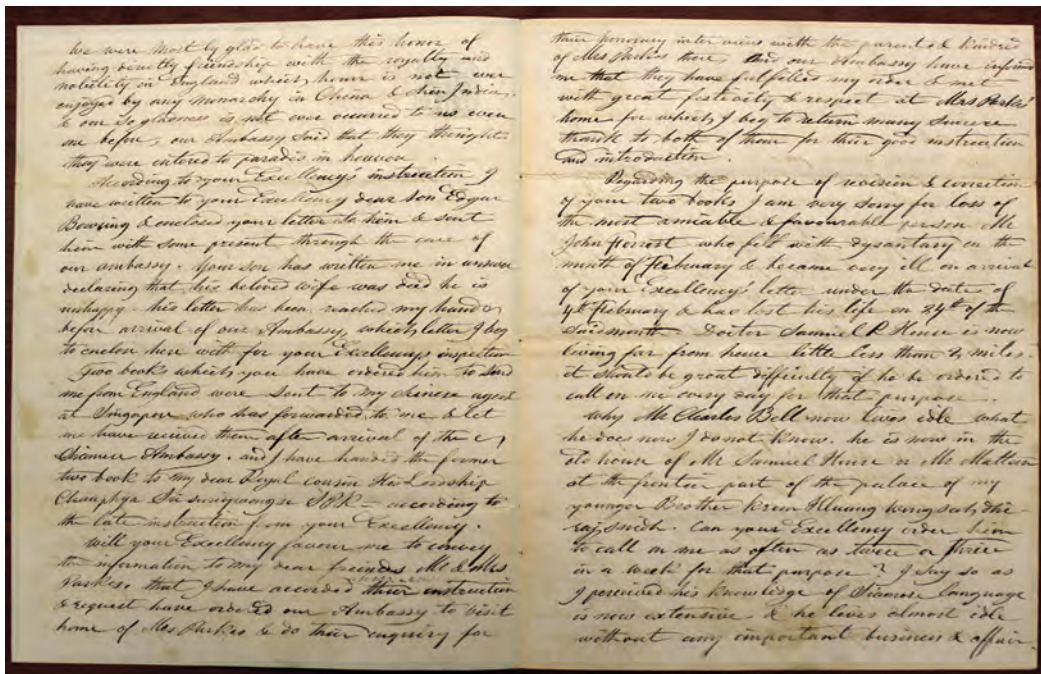 we were most ly glad to have this honor of
having directly friendship with the royalty and
nobility in England which honor is not ever
enjoyed by any monarchy in China &
& our so gladness is not ever occurred to us even
one before, our Ambassy said that they thought
they were entered to paradis in heaven
According to your Excellency's instruction I
have written to your Excellency dear son Edgar
Bowring & enclosed your letter to them & sent
him with some present through the care of
our ambassy. Your son has written me in answer
declaring that his beloved wife was died he is
unhappy. his letter has been reached my hand
before arrival of our Ambassy, which letter I beg
to enclose here with for your Excellency's inspection
Two books which you have ordered him to send
me from England were sent to my chinese agent
at Singapore who has forwarded to me & let
me have received them after arrival of the
Siamese Ambassy. and I have handed the former
two book to my dear Royal cousin His Lordship
Chauphya Sri suriywongse according to
the late instruction from your Excellency.
Will your Excellency favour me to convey
to information to my dear friends Mr & Mrs
Parkes. that I have accorded their instruction
& request have ordered our Ambassy to visit
home of Mrs Parkes & do their enquiry for
their honorary inter views with the parents & Kindred
of Mrs Parkes there, and our Ambassy have informed
me that they have fulfilled my order & met
with great festicity & respect at Mrs Parkes'
home for which I beg to return many sincere
thank to both of them for their good instruction
and introduction.
Regarding the purpose of revision & correction
of your two books I am very sorry for loss of
the most amiable & favourable person Mr
John Forrest who fell with dysantary on the
month of February & became very ill on arrival
of your Excellency's letter under the date of
4th February & has lost his life on 24th of the
said month. Doctor Samuel R House is now
living far from house little less than 2 miles.
it should be great difficulty if he be ordered to
call on me every day for that purpose.
Why Mr Charles Bell now lives idle what
he does now I do not know. he is now in the
old house of Mr Samuel House or Mr Mattoon
at the frontier part of the palace of my
younger Brother Krom Hluang wongsah dhi-
raj snidh. Can your Excellency order him
to call on me as often as twice or thrice
in a week for that purpose? I say so as
I perceived his knowledge of Siamese language
is now extensive & he lives almost idle
without any important business & affair.